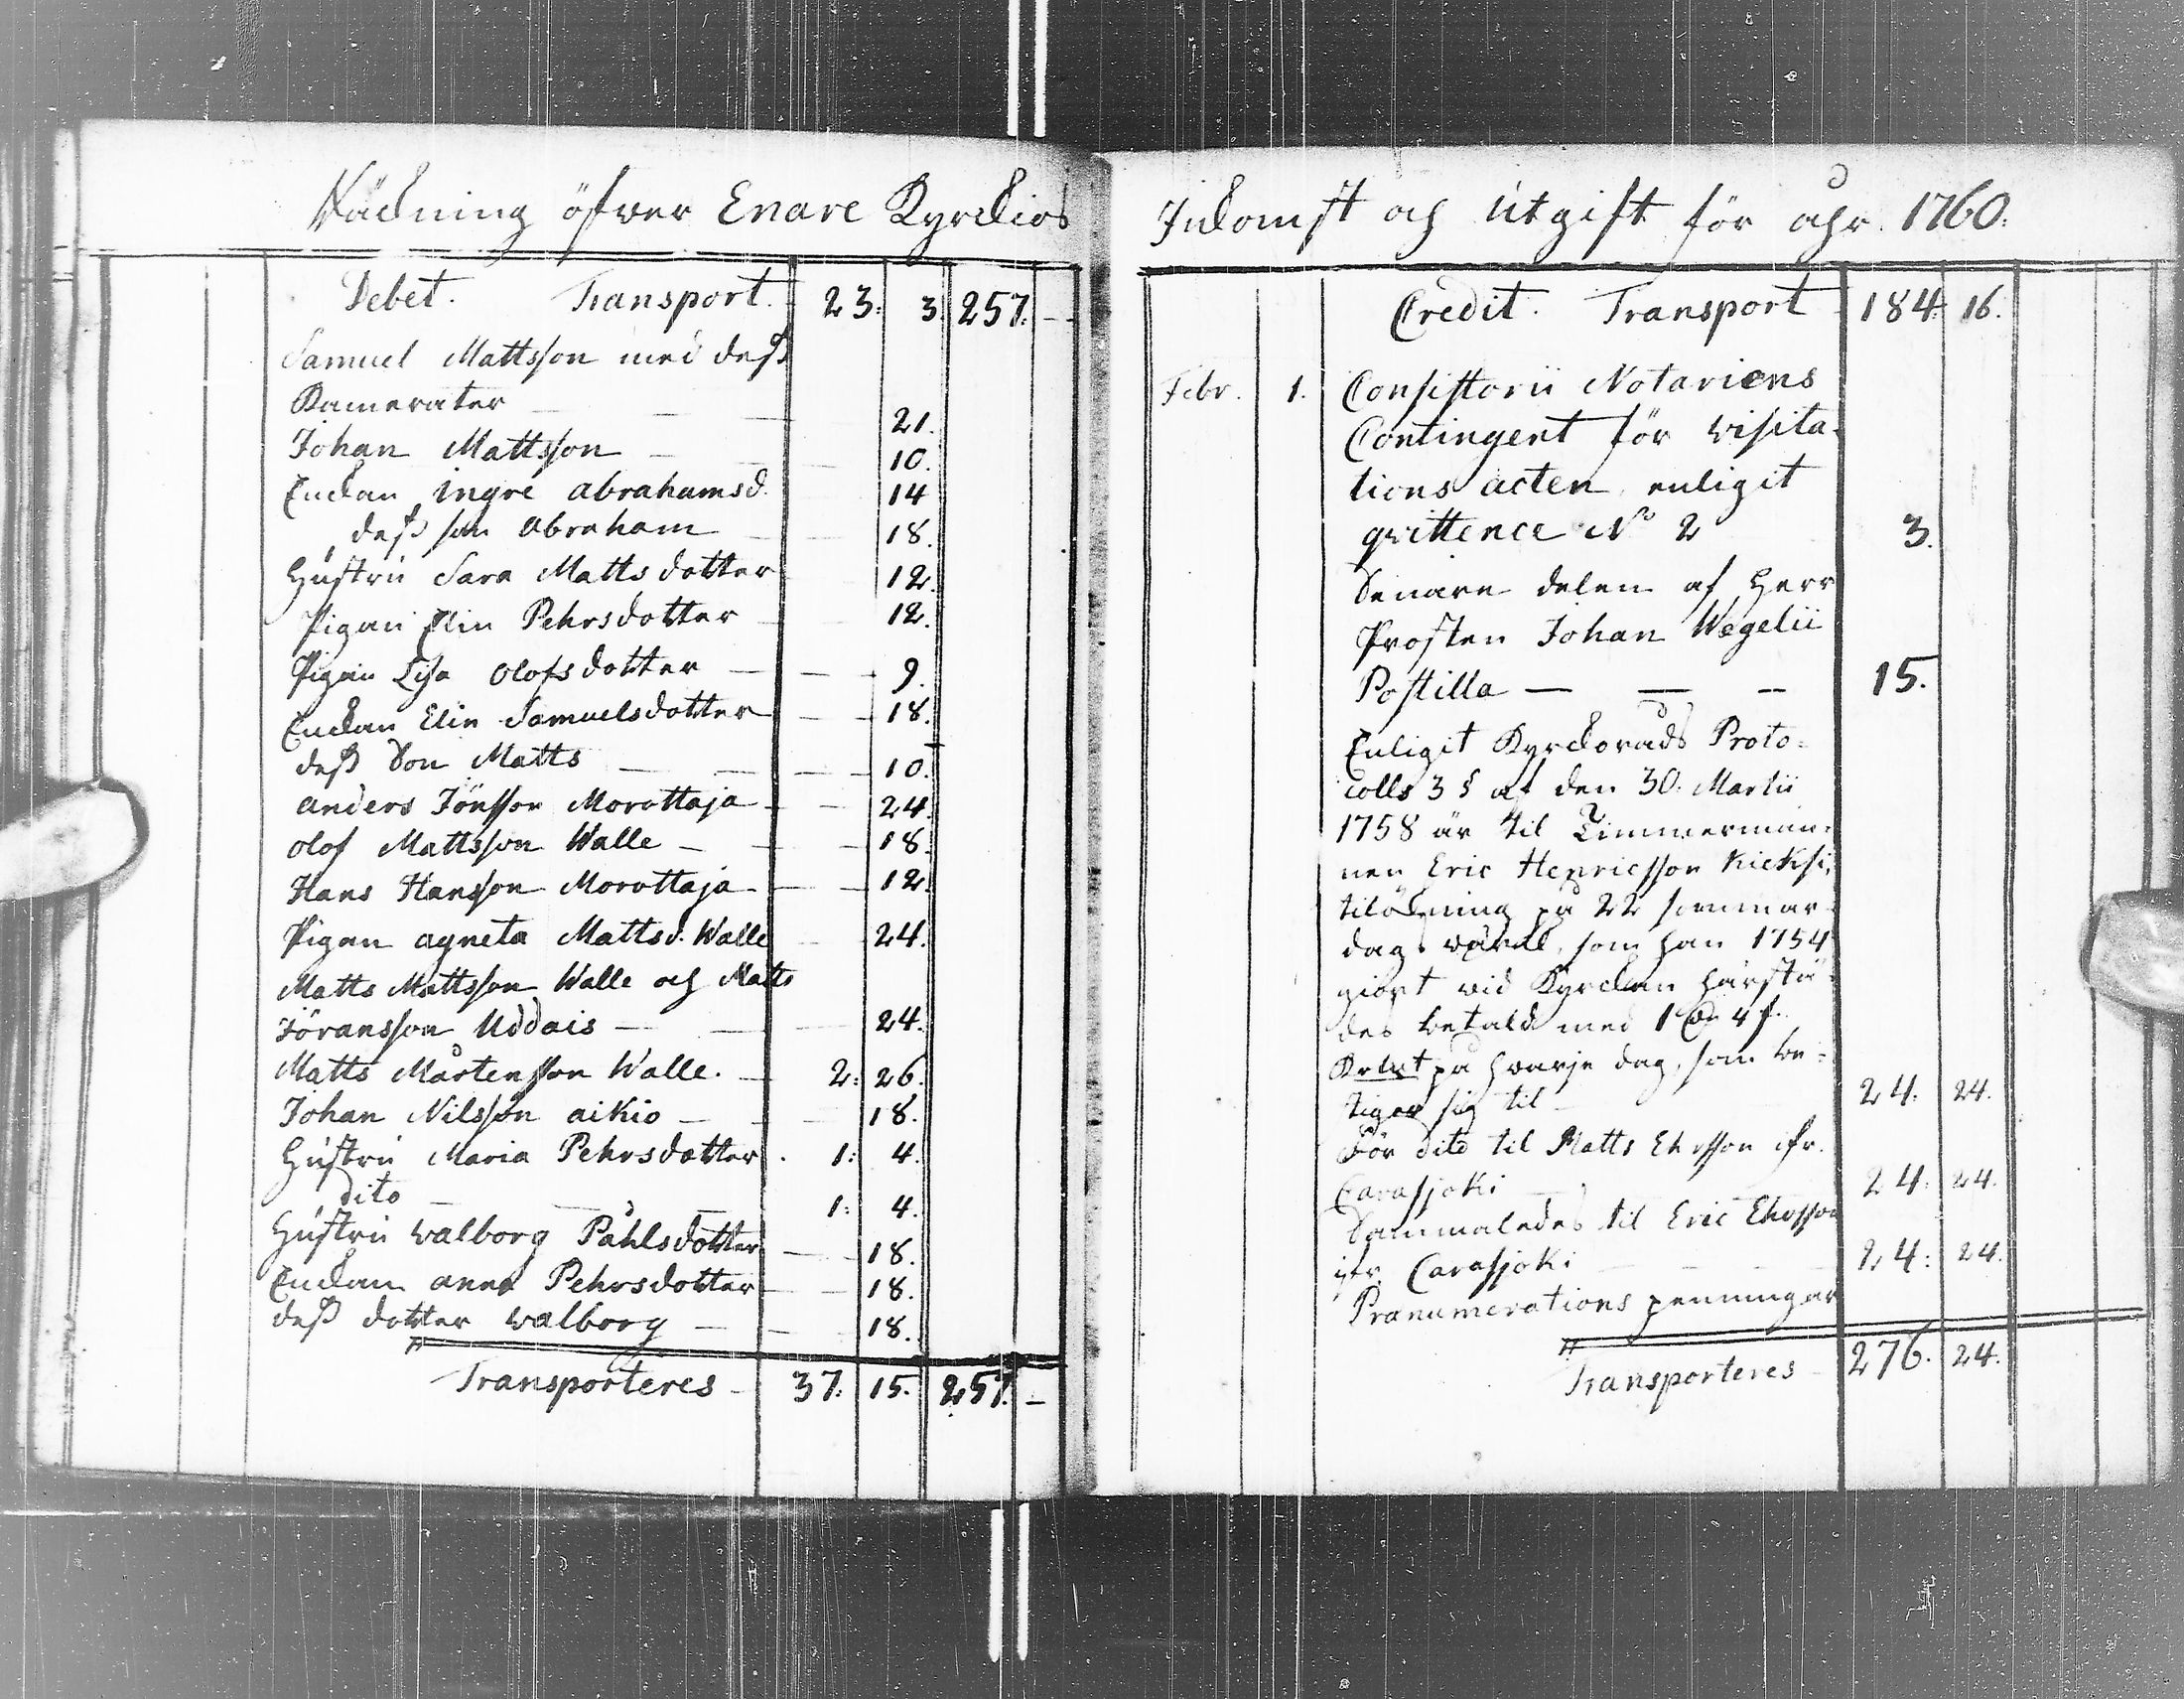 Räckning öfwer Enare Kyrckios
Debet. Transport. 23: 3. 257. —
Samuel Mattsson med dess
Kamerater — — — 21.
Johan Mattsson — — 10.
Enckan ingre abrahamsd. 14
dess son abraham — 18.
Hustru Sara Mattsdotter 12.
Pigan Elin Pehrsdotter — 12.
Pigan Lisa olofsdotter — — 9.
Enckan Elin Samuelsdotter — 18.
dess Son Matts — — — 10.
anders Jönsson Morottaja — 24.
olof Mattsson Walle — — 18.
Hans Hansson Morottaja — — 12.
Pigan agneta Mattsd. Walle — 24.
Matts Mattsson Walle och Matts
Jöransson Uddais — — 24.
Matts Mårtensson Walle. — 2: 26.
Johan Nilsson aikio — — 18.
Hustru Maria Pehrsdotter. 1: 4.
dito — — — 1: 4.
Hustru walborg Påhlsdotter — 18.
Enckan anna Pehrsdotter — 18.
dess dotter walborg — — 18.
Transporteres — 37: 15. 257. —
Inkomst och Utgift för åhr 1760.
Credit. Transport 184: 16.
Febr. 1. Consistorii Notariens
Contingent för visita-
tions acten enligit
qvittence No 2 3.
Senare delen af Herr
Prosten Johan Wegelii
Postilla — — — 15.
Enligit Kyrckoråds Proto-
colls 3 § af den 30. Martii
1758 är til Timmerman-
nen Eric Henricsson Kieksi,
tilökning på 22 sommar
dags som han 1754
giort wid Kyrckan härstä-
des betald med 1
på hwarje dag, som be-
tiger sig til — 24: 24.
För dito til Matts ifr.
Carasjoki — 24: 24.
Sammaledes til Eric
ifr. Carasjoki — — 24: 24.
Pranumerations penningar
Transporteres — 276. 24.